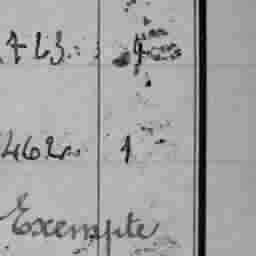 423. 9
462. 1
Exempte